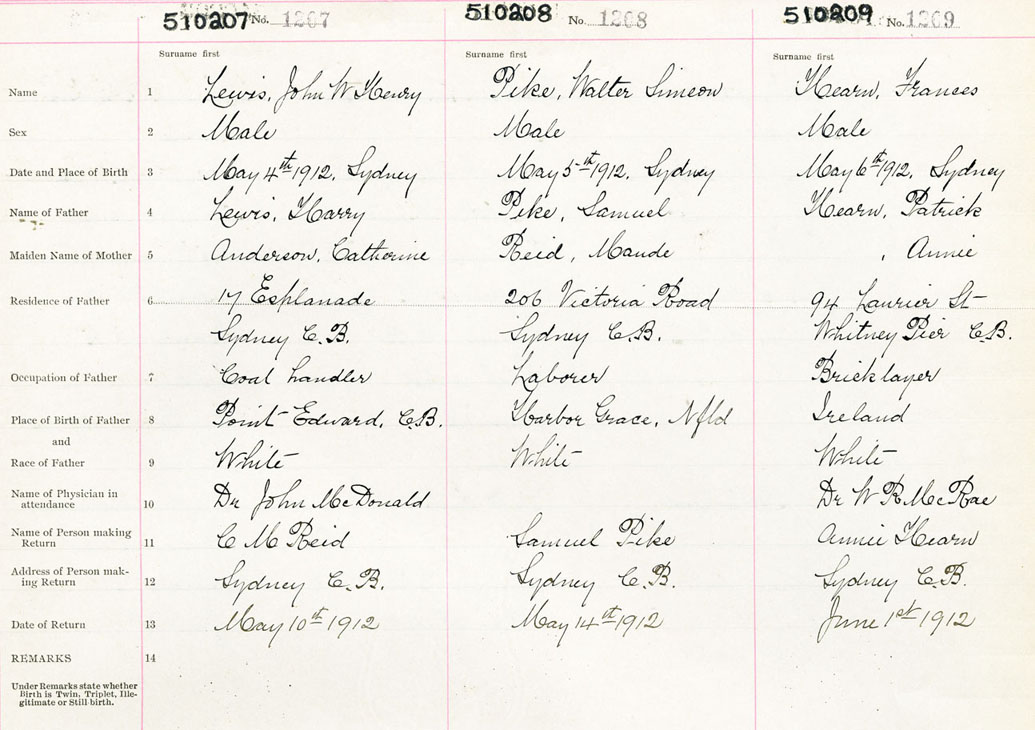 510207 No. 1207 510208 No. 1208 510209 No. 1209
Surname first Surname first Surname first
Name 1 Lewis, John W Henry Pike, Walter Simeon Hearn, Frances
Sex 2 Male Male Male
Date and Place of Birth 3 May 4th 1912, Sydney May 5th 1912, Sydney May 6th 1912, Sydney
Name of Father 4 Lewis, Harry Pike, Samuel Hearn, Patrick
Maiden Name of Mother 5 Anderson, Catherine Reid, Maude , Annie
Residence of Father 6 17 Esplanade 206 Victoria Road 94 Laurier St
Sydney C.B. Sydney C.B. Whitney Pier C.B.
Occupation of Father 7 Coal handler Laborer Bricklayer
Place of Birth of Father 8 Point Edward, C.B. Harbor Grace, Nfld Ireland
and
Race of Father 9 White White White
Name of Physician in
attendance 10 Dr John McDonald Dr W R McRae
Name of Person making
Return 11 C M Reid Samuel Pike Annie Hearn
Address of Person mak-
ing Return 12 Sydney C.B. Sydney C.B. Sydney C.B.
Date of Return 13 May 10th 1912 May 14th 1912 June 1st 1912
REMARKS 14
Under Remarks state whether
Birth is Twin, Triplet, Ille-
gitimate or Still-birth.